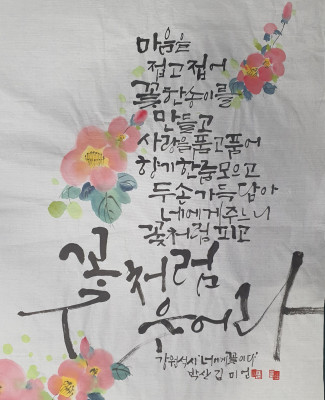 마음을
접고 접어
꽃 한 송이를
만들고
사랑을 품고 품어
향기 한 줌 모으고
두 손 가득 담아
너에게 주노니
꽃처럼 피고
꽃처럼
웃어라
강원석 시 '너에게 꽃이다'
박산 김미언